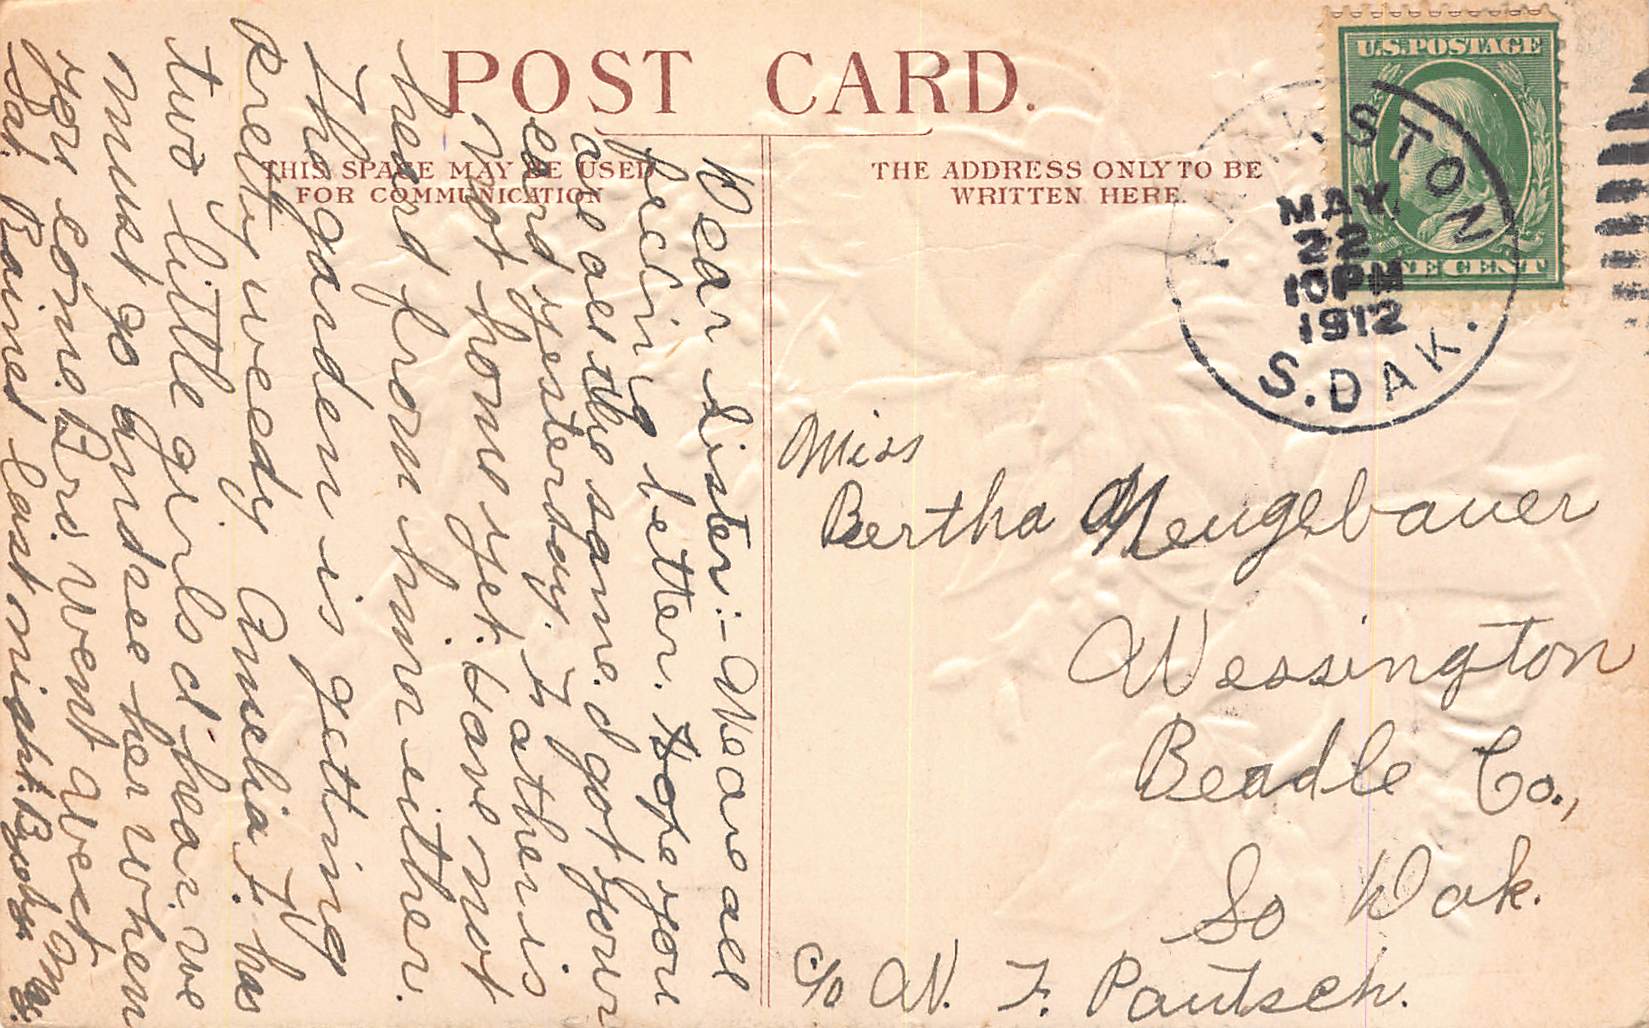 POST CARD.
THIS SPACE MAY BE USED
FOR COMMUNICATION
THE ADDRESS ONLY TO BE
WRITTEN HERE.
U.S. POSTAGE
ONE CENT
MAY
22
10 PM
1912
S. DAK.
Miss
Bertha Neugebauer
Wessington
Beadle Co.,
So Dak.
c/o W. F. Pautsch.
Dear Sister:- We are all
feeling better. Hope you
are all the same. I got your
card yesterday. Father is
not home yet. Have not
heard from him either.
The garden is getting
pretty weedy. Amelia F. has
two little girls I hear. we
must go and see her when
you come. Brs. went West
Sat. Rained last night.